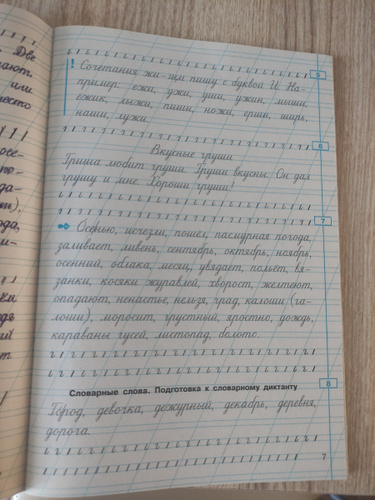 Две
5
! Сочетания жи - ши пиши с буквой И. На-
пример: ежи, ужи, уши, ужин, мыши,
ёжик, лыжи, пиши, ножи, ерши, ширь,
наши, лужи.
6
Вкусные груши
Гриша любит груши. Груши вкусны. Он дал
грушу и мне. Хороши груши!
7
Осенью, исчезли, пошёл, пасмурная погода,
заливает, ливень, сентябрь, октябрь, ноябрь,
осенний, облака, месяц, увядает, польёт, вя-
занки, косяки журавлей, хворост, желтеют,
опадают, ненастье, нельзя, град, калоши (га-
лоши), моросит, грустный, яростно, дождь,
караваны гусей, листопад, болото.
8
Словарные слова. Подготовка к словарному диктанту
Город, девочка, дежурный, декабрь, деревня,
дорога.
7